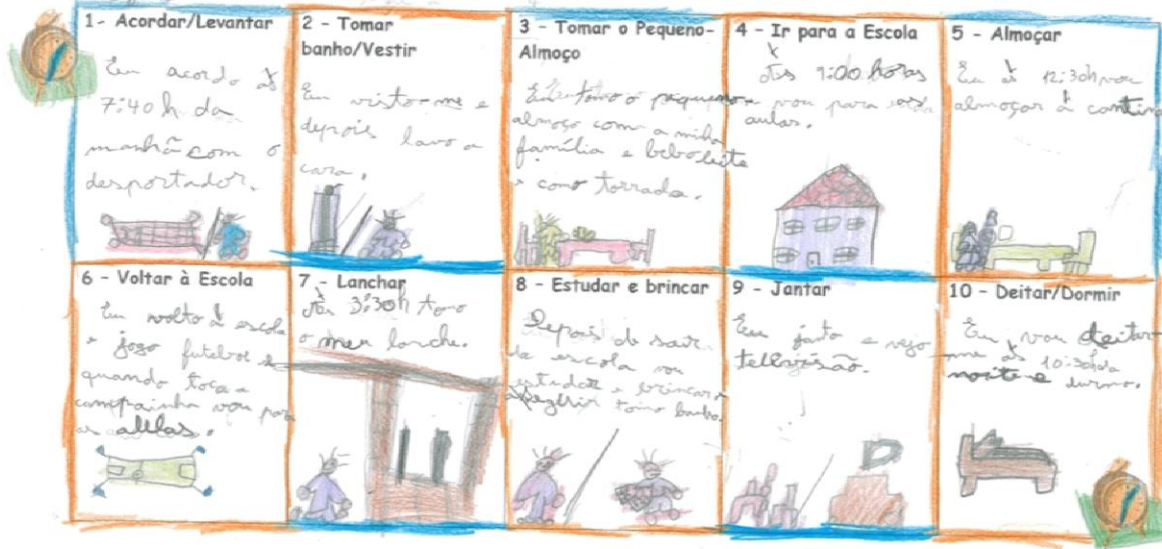 1- Acordar/Levantar
Eu acordo às
7:40 h da
manhã com o
desportador.
2 - Tomar
banho/Vestir
Eu visto-me e
depois lavo a
cara.
3 - Tomar o Pequeno-
Almoço
Eu tomo o pequeno
almoço com a minha
família e bebo leite
e como torrada.
4 - Ir para a Escola
Às 9:00 horas
vou para as
aulas.
5 - Almoçar
Eu às 12:30h vou
almoçar à cantina
6 - Voltar à Escola
Eu volto à escola
e jogo futebol e
quando toca a
campainha vou para
as aulas.
7 - Lanchar
Às 3:30h tomo
o meu lanche.
8 - Estudar e brincar
Depois de sair
da escola vou
estudar e brincar
tomo banho.
9 - Jantar
Eu janto e vejo
televisão.
10 - Deitar/Dormir
Eu vou deitar-
me às 10:30h da
noite e durmo.